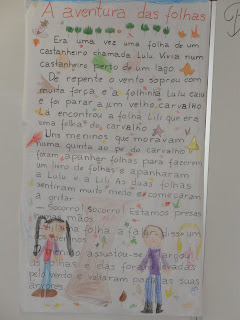 A aventura das folhas
Era uma vez uma folha de um
castanheiro chamada Lulu. Vivia num
castanheiro perto de um lago.
De repente o vento soprou com
muita força e a folhinha Lulu caiu
e foi parar a um velho carvalho.
Lá encontrou a folha Lili que era
uma folha do carvalho.
Uns meninos que moravam
numa quinta ao pé do carvalho
foram apanhar folhas para fazerem
um livro de folhas e apanharam
a Lulu e a Lili. As duas folhas
sentiram muito medo e começaram
a gritar:
— Socorro! Socorro! Estamos presas
mãos.
uma folha a falar disse um
meninos.
assustou-se largou
as folhas e elas foram levadas
pelo vento e voltaram para as suas
árvores.